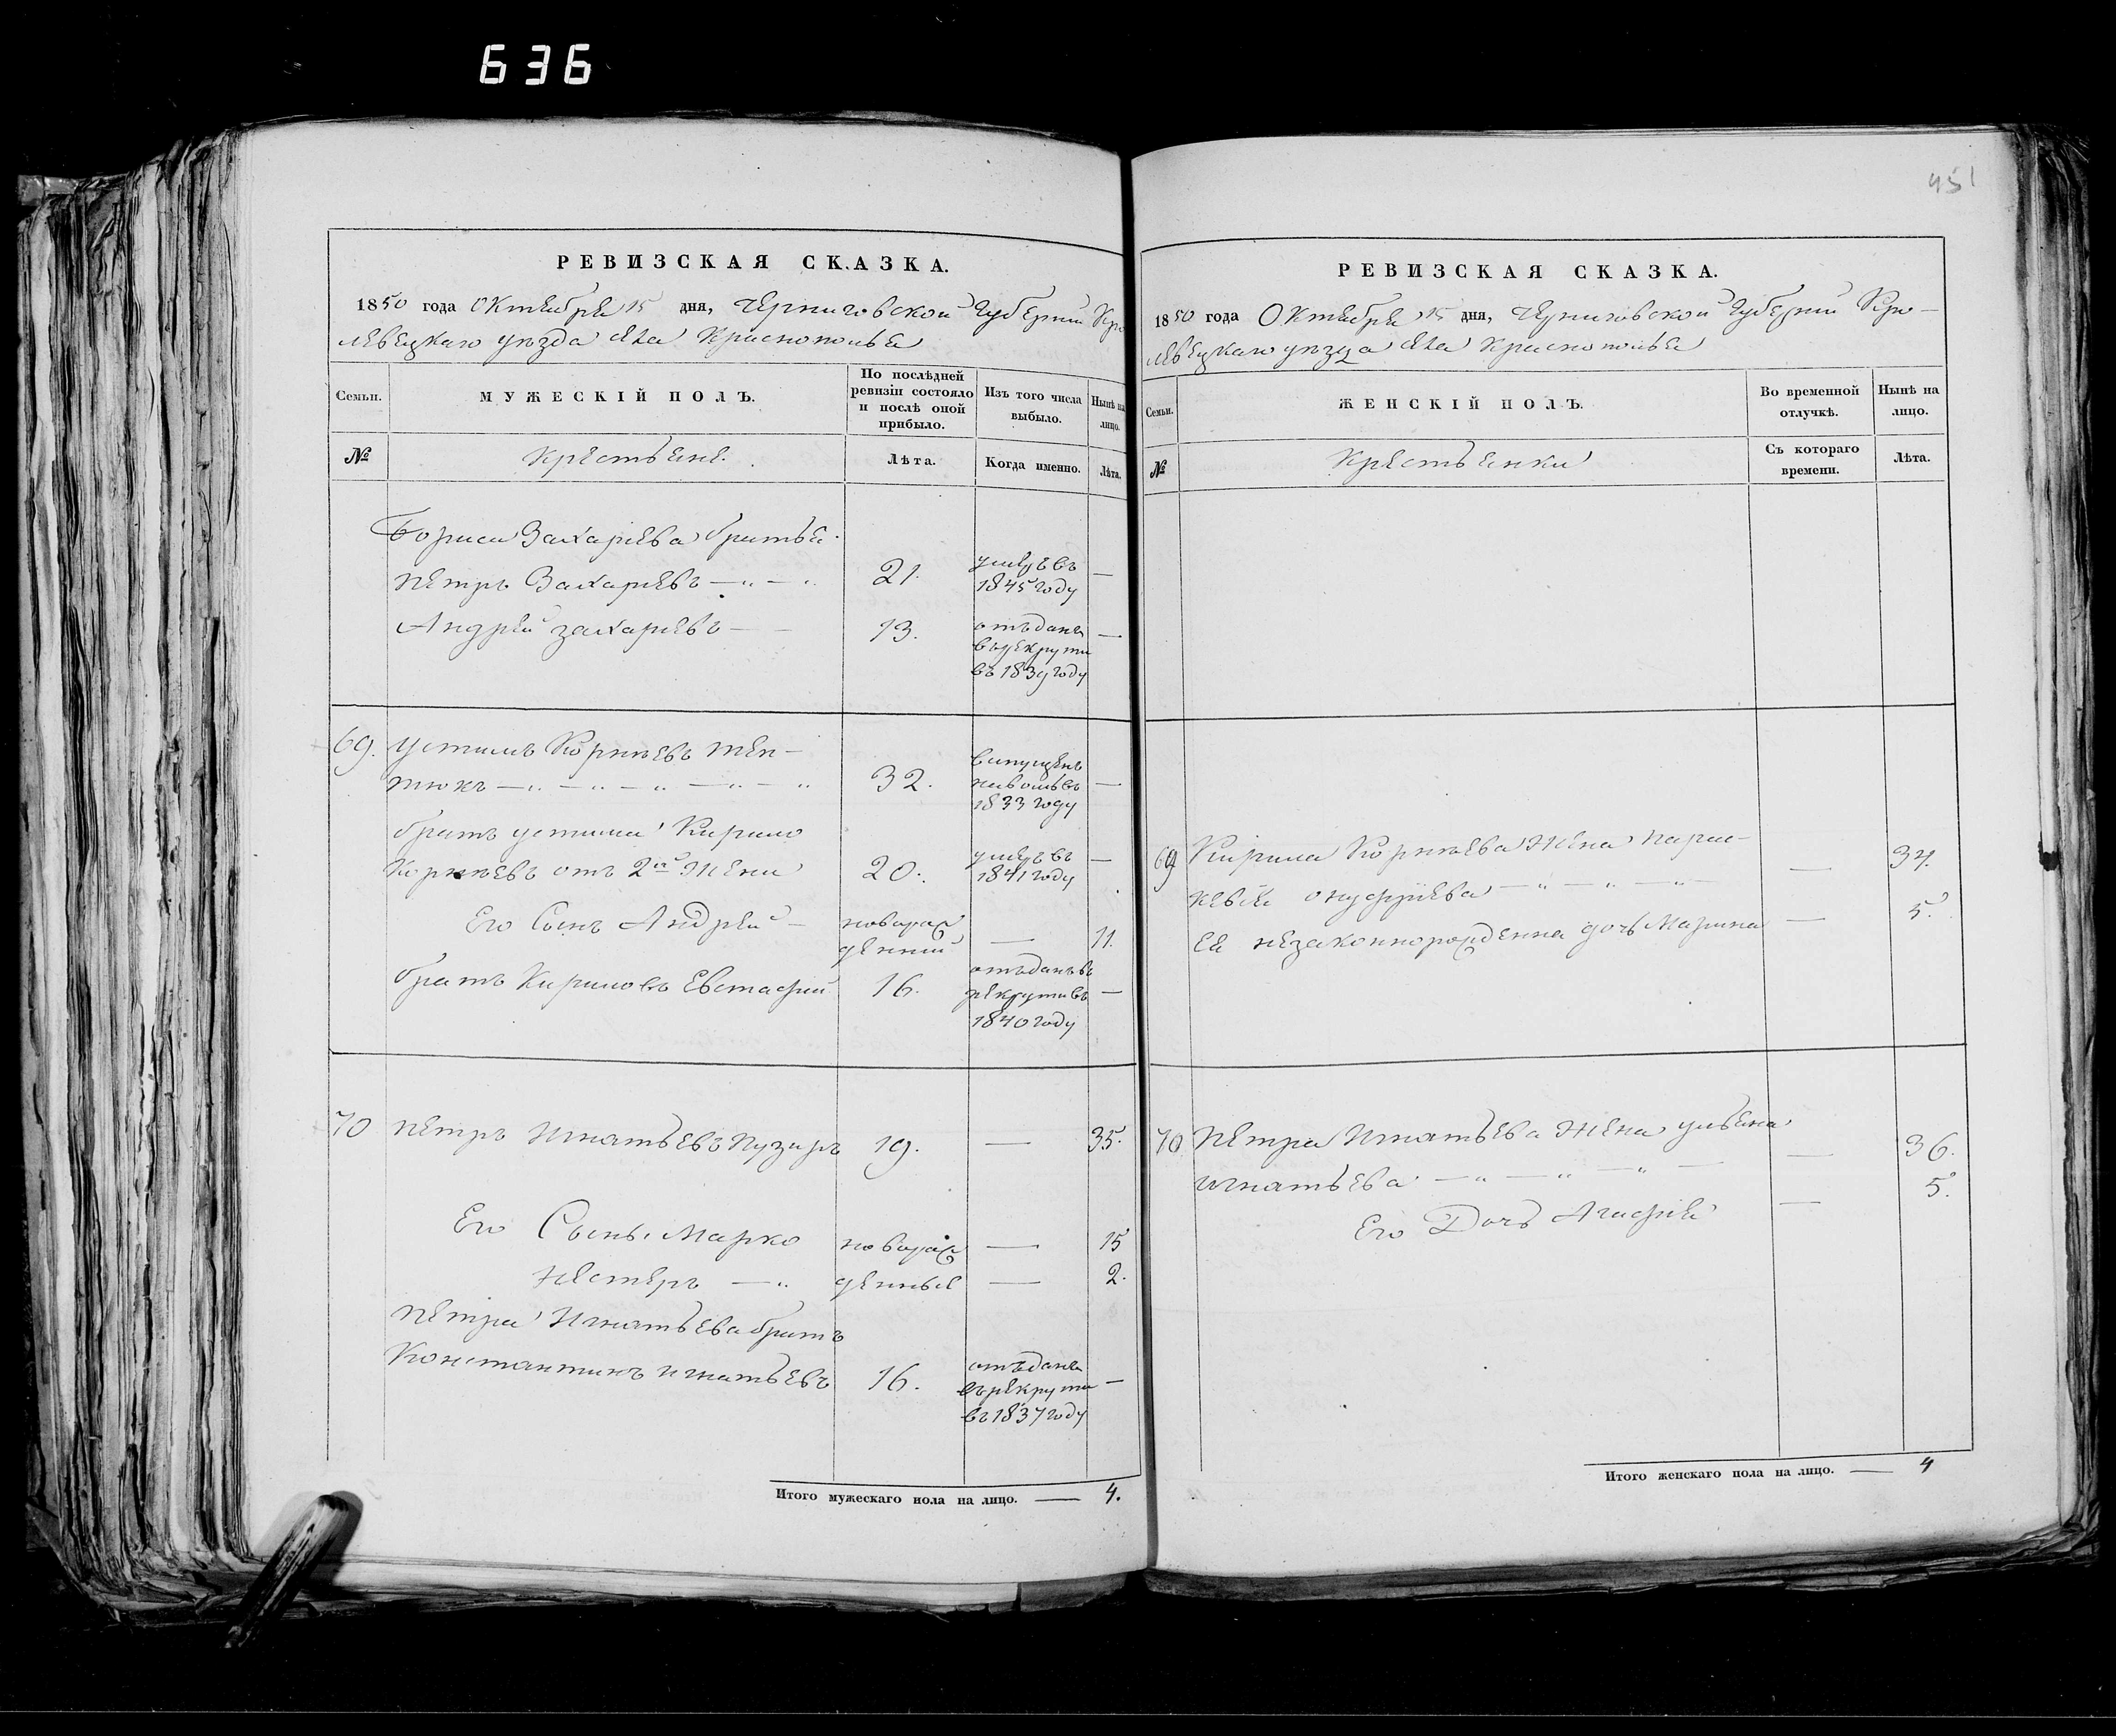 636
РЕВИЗСКАЯ СКАЗКА.
1850 года Октября 15 дня, Черниговской Губерніи Кро
левецкаго уезда села Краснополья
Семьи.
МУЖЕСКІЙ ПОЛЪ.
По послѣдней ревизіи состояло и послѣ оной прибыло.
Изъ того числа выбыло.
Нынѣ на лицо.
№
Крестьяне.
Лѣта.
Когда именно.
Лѣта.
Бориса Захариева братья
Петръ Захариевъ — „ — „ 21. умеръ въ 1845 году —
Андрей Захариевъ — — 13. отъданъ въ рекрути въ 1839 году —
69. Устимъ Корнѣевъ Тен-
тюхъ — „ — „ — „ — „ — „ 32. випущенъ на волю въ 1833 году —
братъ устима Кирило
Корнѣевъ отъ 2й Жени 20. умеръ въ 1841 году —
Его Сынъ Андрей — новорож денний — 11.
братъ Кириловъ Евстафий 16. отъданъ въ рекрути въ 1840 году —
70 Петръ Игнатьевъ Пузиръ 19. — 35.
Его Сынъ, Марко новорож — 15
Нестеръ — „ денные — 2.
Петра Игнатьева братъ
Константинъ игнатьевъ 16. отъданъ въ рекрути въ 1837 году —
Итого мужескаго пола на лицо. — 4.
451
РЕВИЗСКАЯ СКАЗКА.
1850 года Октября 15 дня, Черниговской Губерніи Кро-
левецкаго уезда села Краснополья
Семьи.
ЖЕНСКІЙ ПОЛЪ.
Во временной отлучкѣ.
Нынѣ на лицо.
№
Крестьянки
Съ котораго времени.
Лѣта.
69 Кирила Корнѣева Жена Парас-
кевѣя онуфріева — „ — „ — „ — — 34.
Ея незаконнорожденна дочь Марина — 5.
70 Петра Игнатьева Жена ульяна
игнатьева — „ — „ — „ — — 36.
Его Дочь Агафия — 5.
Итого женскаго пола на лицо. — 4